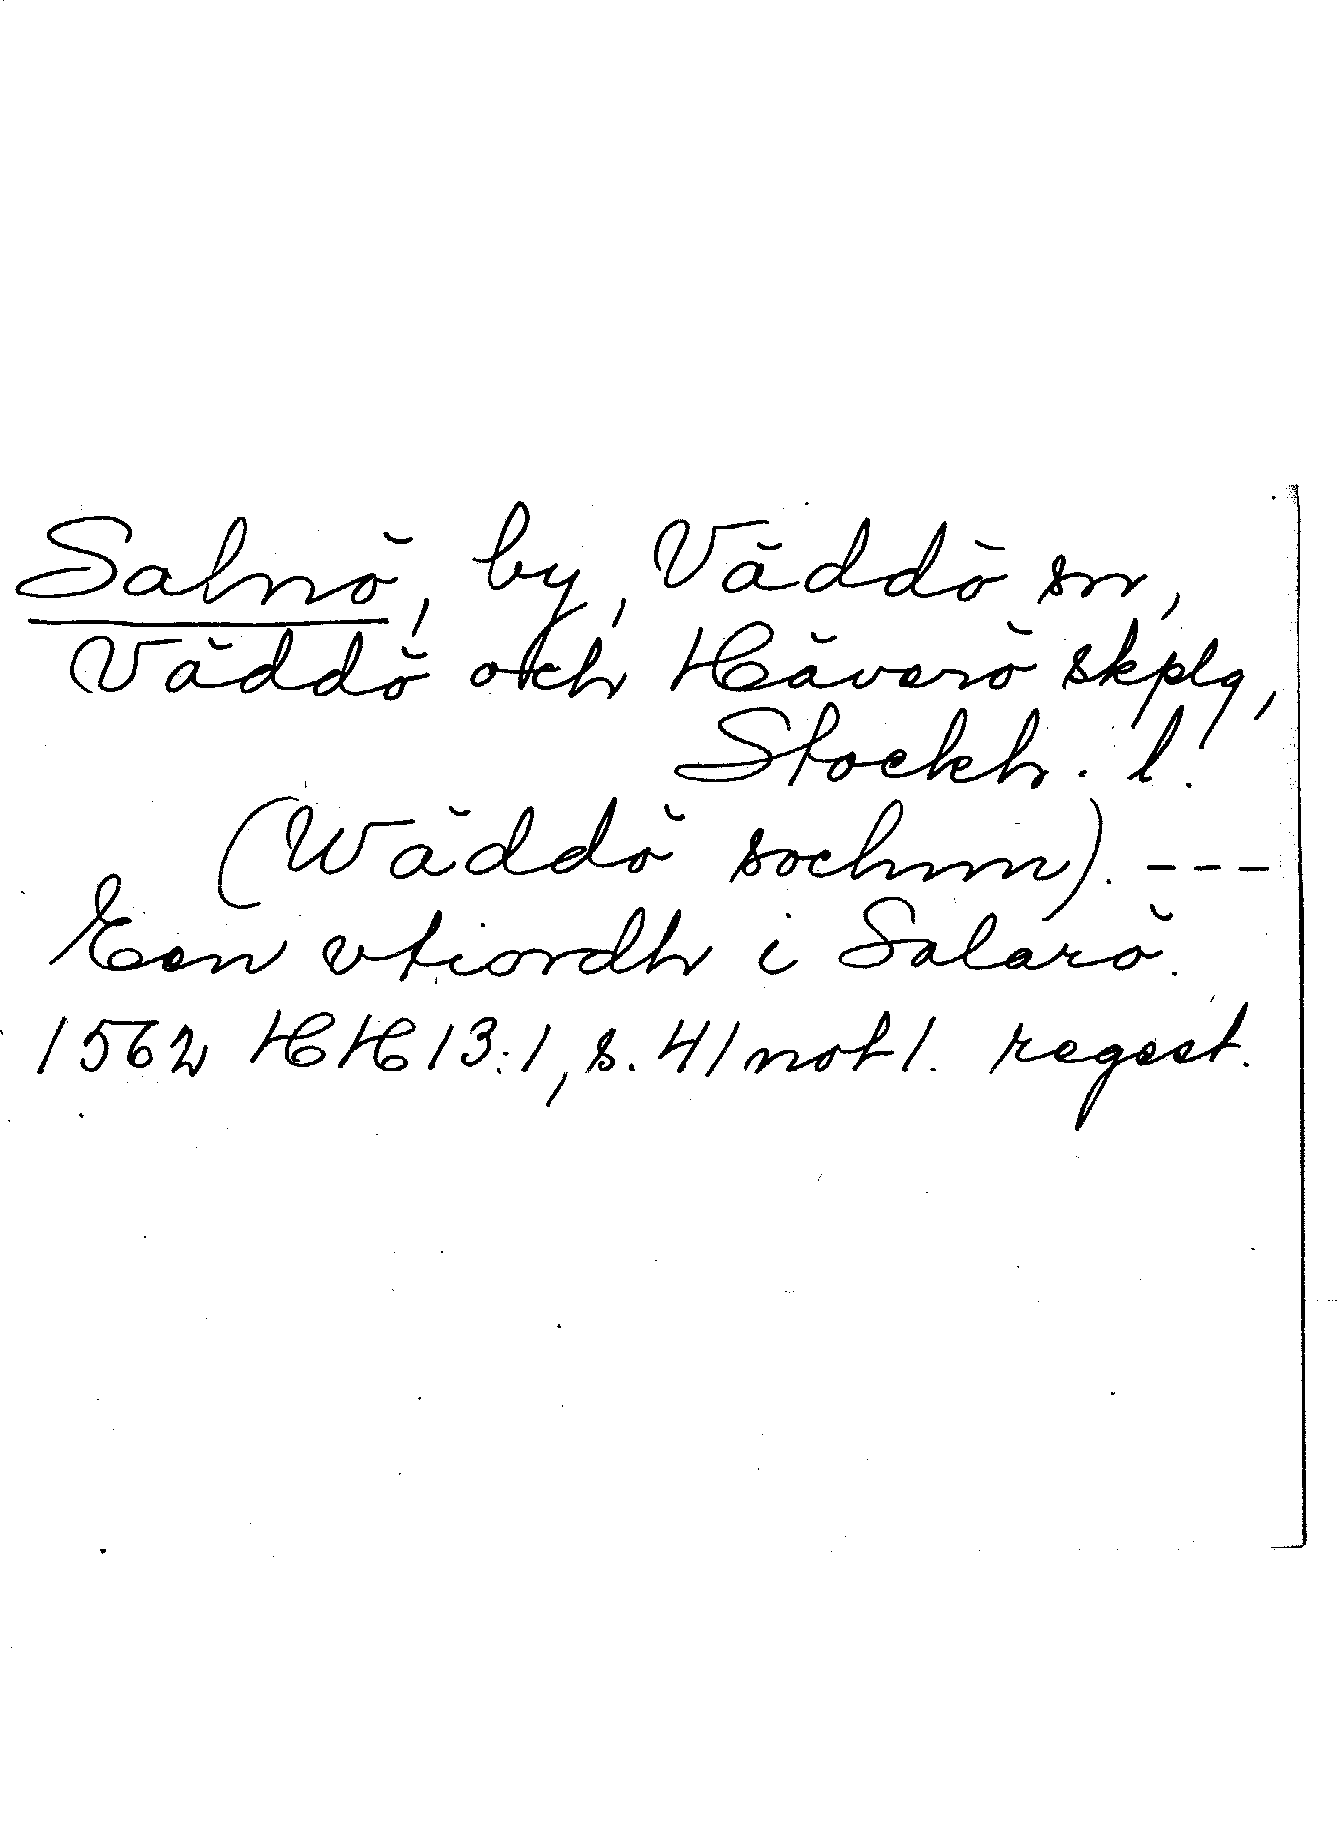 Salnö, by, Väddö sn,
Väddö och Häverö skplg,
Stockh. l.
(Wäddö sochnn). ---
Een vtiordh i Salarö.
1562 HH 13:1, s. 41 not 1. regest.